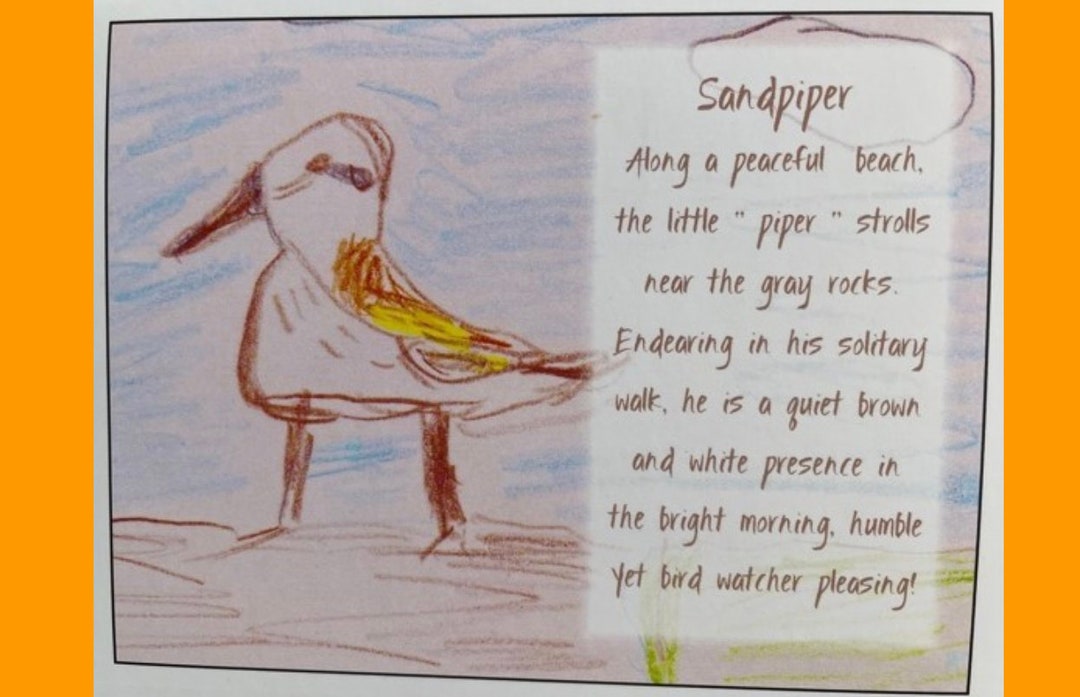 Sandpiper
Along a peaceful beach,
the little " piper " strolls
near the gray rocks.
Endearing in his solitary
walk, he is a quiet brown
and white presence in
the bright morning, humble
yet bird watcher pleasing!